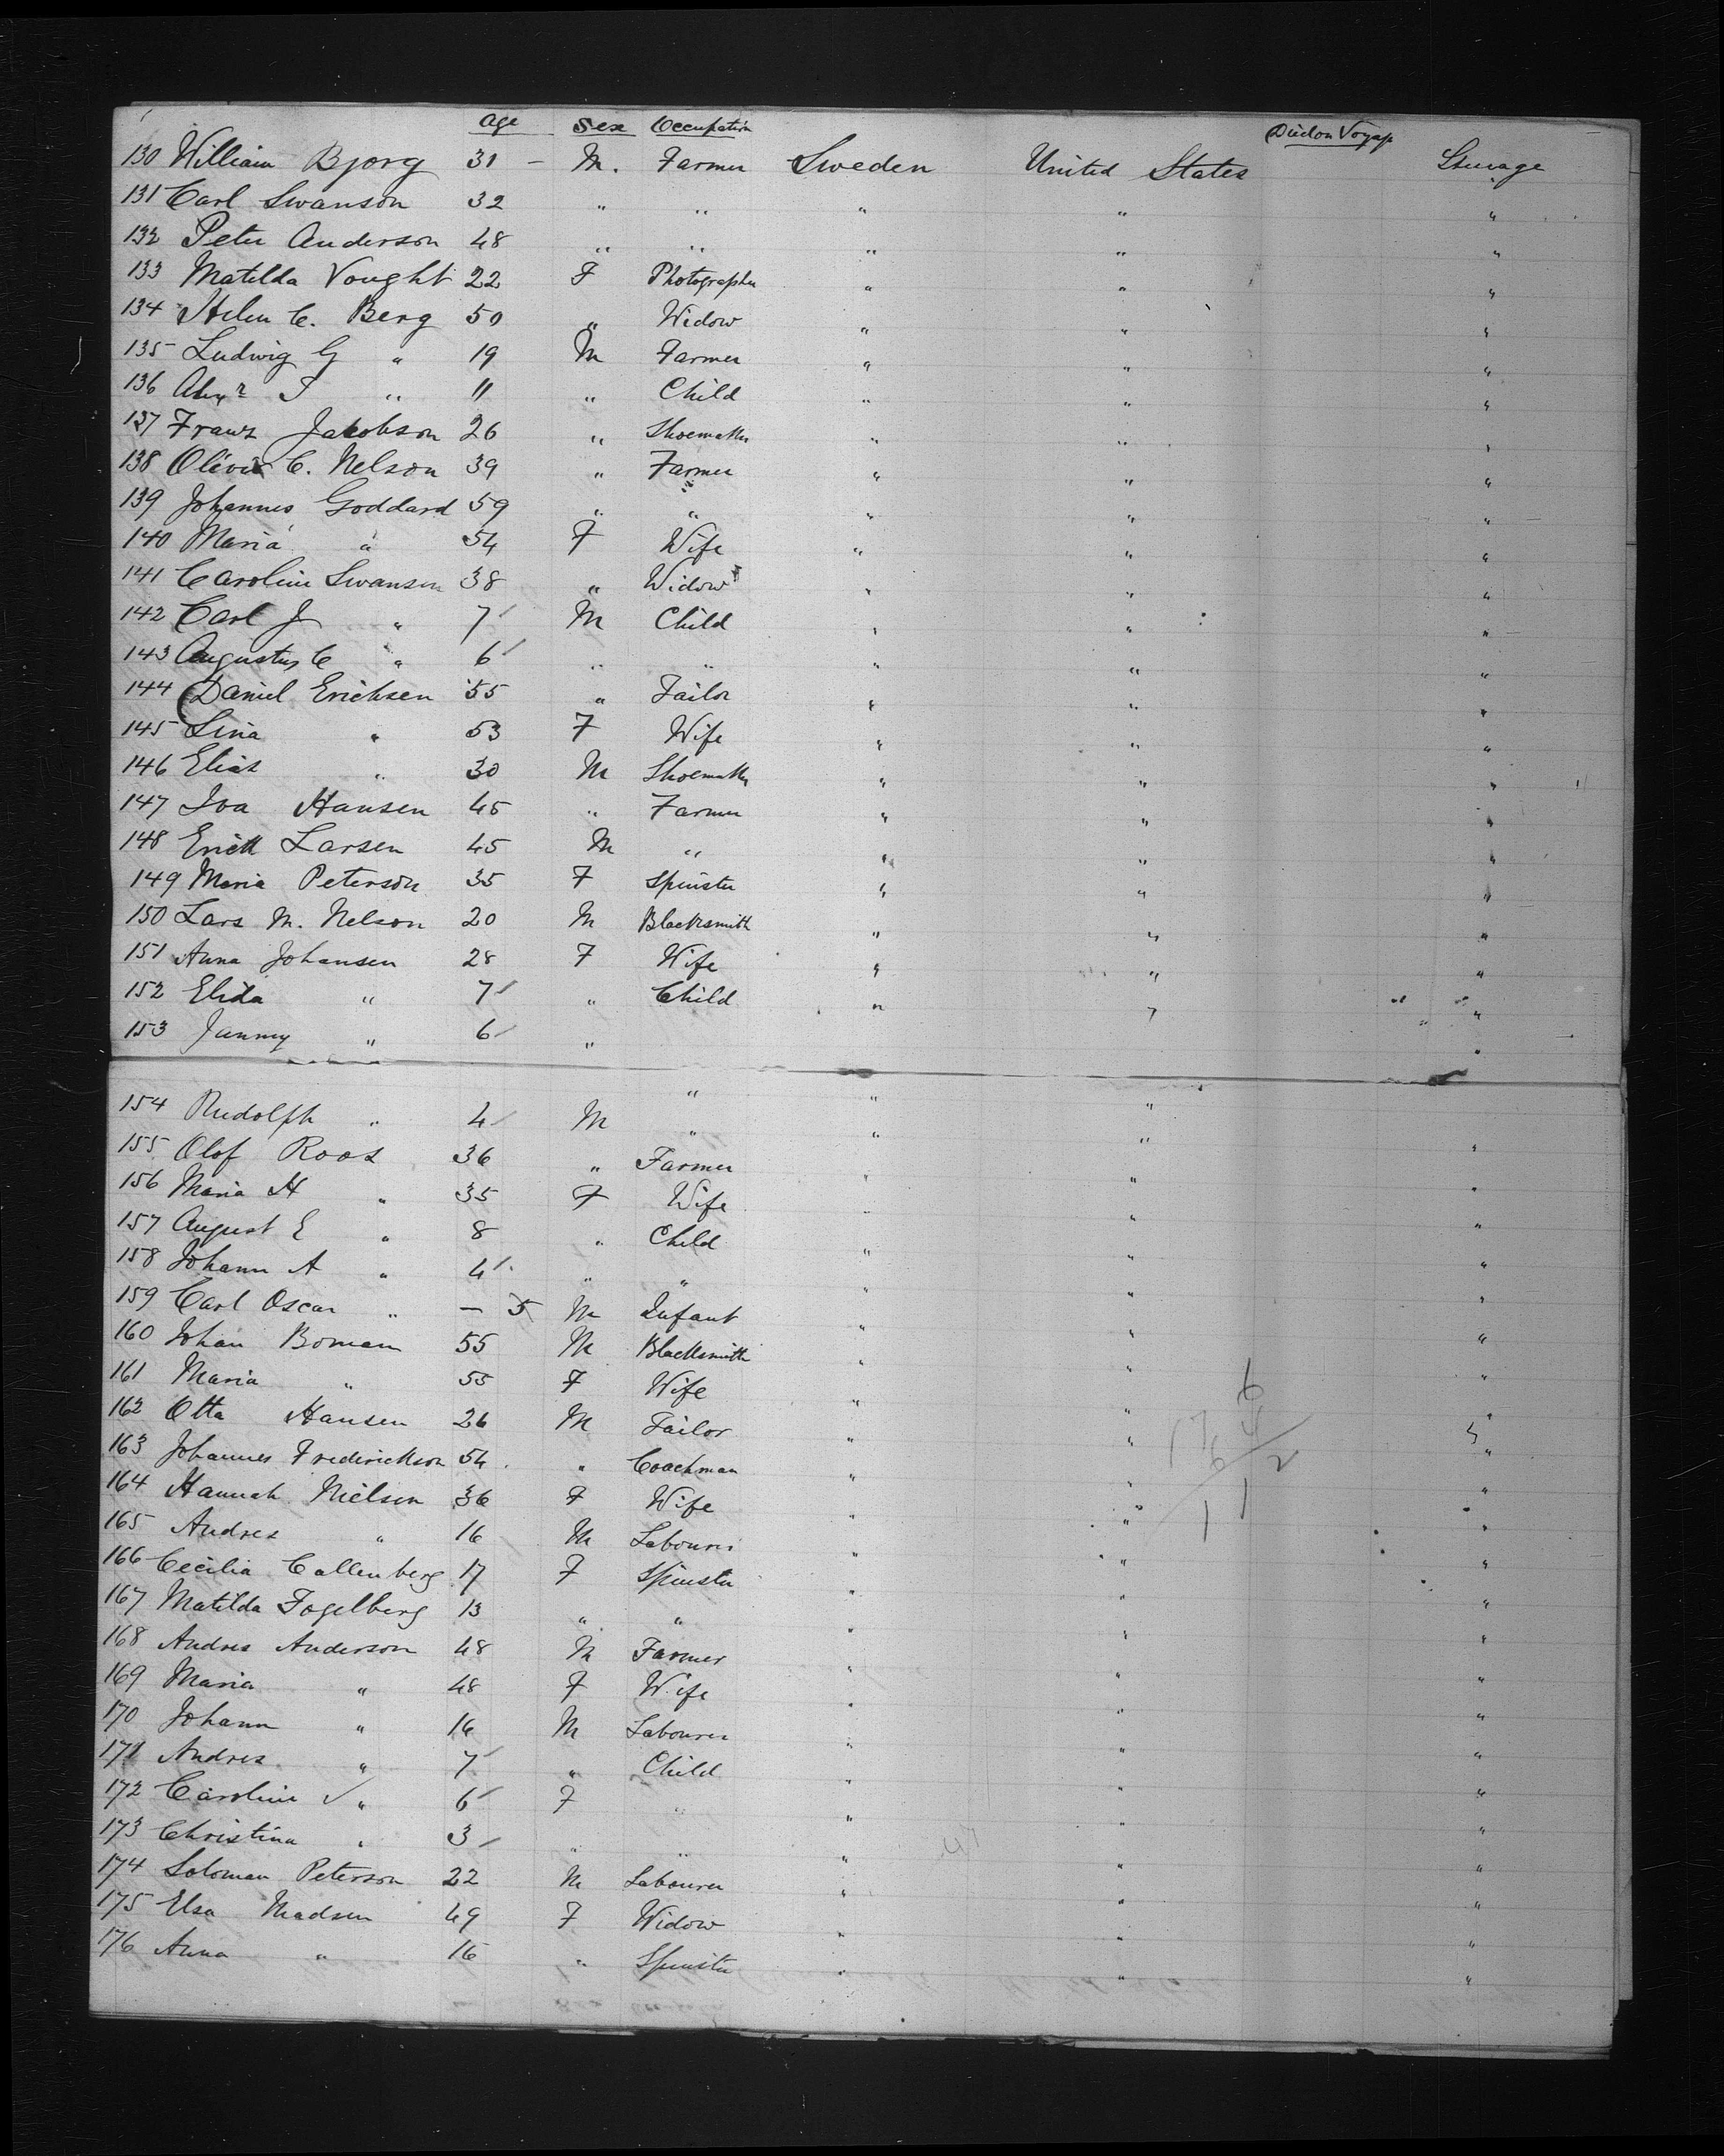 Age Sex Occupation Died on Voyage
130 William Bjorg 31 – M. Farmer Sweden United States Steerage
131 Carl Swanson 32 " " " " "
132 Peter Anderson 48 " " " " "
133 Matilda Vought 22 F Photographer " " "
134 Helen C. Berg 50 " Widow " " "
135 Ludwig G " 19 M Farmer " " "
136 Alexr J " 11 " Child " " "
137 Franz Jakobson 26 " Shoemaker " " "
138 Oliver C. Nelson 39 " Farmer " " "
139 Johannes Goddard 59 " " " " "
140 Maria " 54 F Wife " " "
141 Caroline Swansen 38 " Widow " " "
142 Carl J " 7 M Child " " "
143 Augustus C " 6 " " " " "
144 Daniel Erichsen 55 " Tailor " " "
145 Lina " 53 F Wife " " "
146 Elias " 30 M Shoemaker " " "
147 Iva Hansen 45 " Farmer " " "
148 Erick Larsen 45 M " " " "
149 Maria Peterson 35 F Spinster " " "
150 Lars M. Nelson 20 M Blacksmith " " "
151 Anna Johansen 28 F Wife " " "
152 Elida " 7 " Child " " "
153 " 6 " " " " "
154 Rudolph " 4 M " " "
155 Olof Roos 36 " Farmer " " "
156 Maria H " 35 F Wife " " "
157 August E " 8 " Child " " "
158 Johann A " 4 " " " " "
159 Carl Oscar " — 5 M Infant " " "
160 Johan Boman 55 M Blacksmith " " "
161 Maria " 55 F Wife " " "
162 Otta Hansen 26 M Tailor " " "
163 Johannes Frederickson 54 " Coachman " " "
164 Hannah Nielsen 36 F Wife " " "
165 Andres " 16 M Labourer " " "
166 Cecilia Callenberg 17 F Spinster " " "
167 Matilda Fogelberg 13 " " " " "
168 Andres Anderson 48 M Farmer " " "
169 Maria " 48 F Wife " " "
170 Johann " 16 M Labourer " " "
171 Andres " 7 " Child " " "
172 Caroline " 6 F " " " "
173 Christina " 3 " " " " "
174 Soloman Peterson 22 M Labourer " " "
175 Elsa Madsen 49 F Widow " " "
176 Anna " 16 " Spinster " " "